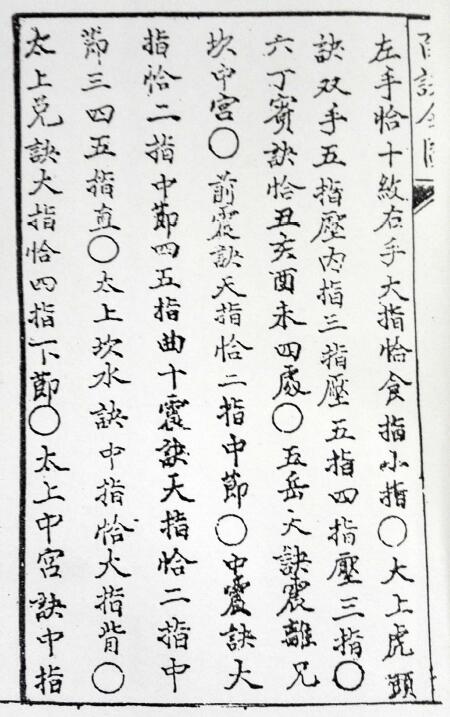 百訣全圖
左手恰十紋右手大指恰食指小指〇大上虎頭
訣双手五指壓内指三指壓五指四指壓三指〇
六丁賓訣恰丑亥酉未四處〇五岳大訣震離兄
坎中宮〇前震訣天指恰二指中節〇中震訣大
指恰二指中節四五指曲十震訣天指恰二指中
節三四五指直〇太上坎水訣中指恰大指背〇
太上兌訣大指恰四指下節〇太上中宮訣中指